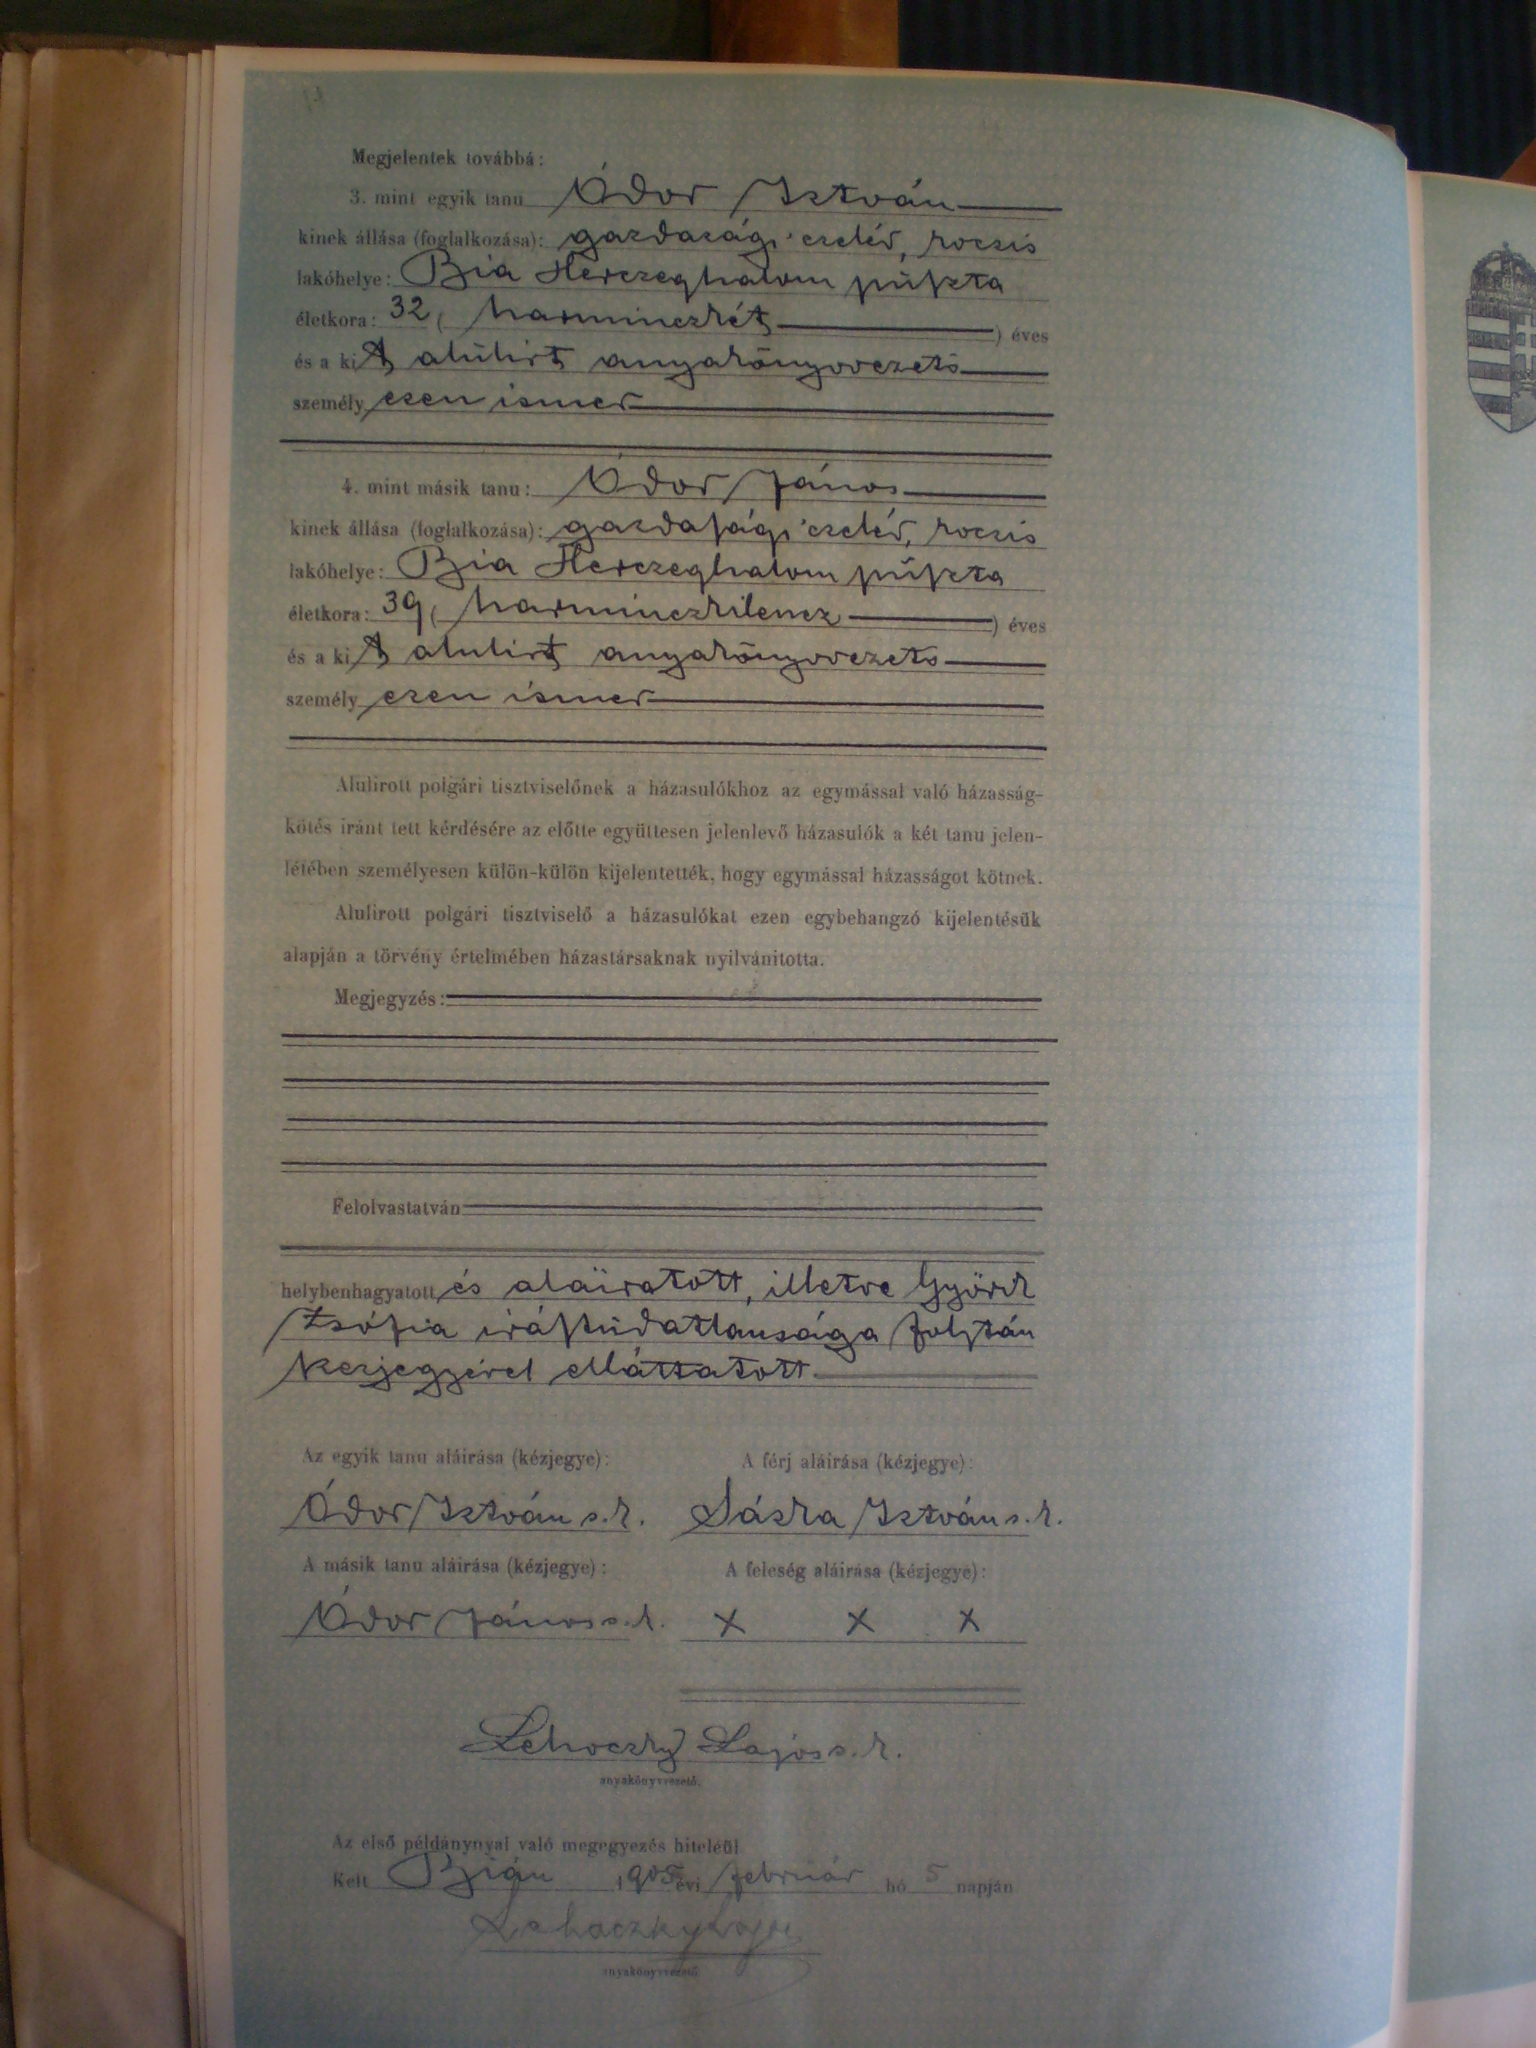 Megjelentek továbbá:
3. mint egyik tanu Ódor István
kinek állása (foglalkozása): gazdasági cseléd, kocsis
lakóhelye: Bia Herczeghalom púszta
életkora: 32 ( harminczkét ) éves
és a kit alúlirt anyakönyvvezető
személyesen ismer
4. mint másik tanu: Ódor János
kinek állása (foglalkozása): gazdasági cseléd, kocsis
lakóhelye: Bia Herczeghalom púszta
életkora: 39 ( harminczkilencz ) éves
és a kit alulirt anyakönyvvezető
személyesen ismer
Alulirott polgári tisztviselőnek a házasulókhoz az egymással való házasság-
kötés iránt tett kérdésére az előtte együttesen jelenlevő házasulók a két tanu jelen-
létében személyesen külön-külön kijelentették, hogy egymással házasságot kötnek.
Alulirott polgári tisztviselő a házasulókat ezen egybehangzó kijelentésük
alapján a törvény értelmében házastársaknak nyilvánitotta.
Megjegyzés:
Felolvastatván
helybenhagyatott és aláiratott, illetve Györik
Zsófia irástúdatlansága folytán
kezjegyével elláttatott
Az egyik tanu aláirása (kézjegye): A férj aláirása (kézjegye):
Ódor István s. k. Sáska István s. k.
A másik tanu aláirása (kézjegye): A feleség aláirása (kézjegye):
Ódor János s. k. x x x
Lehoczky Lajos s. k.
anyakönyvvezető.
Az első példánynyal való megegyezés hiteléül
Kelt Bián 1905 évi február hó 5 napján
Lehoczky Lajos
anyakönyvvezető